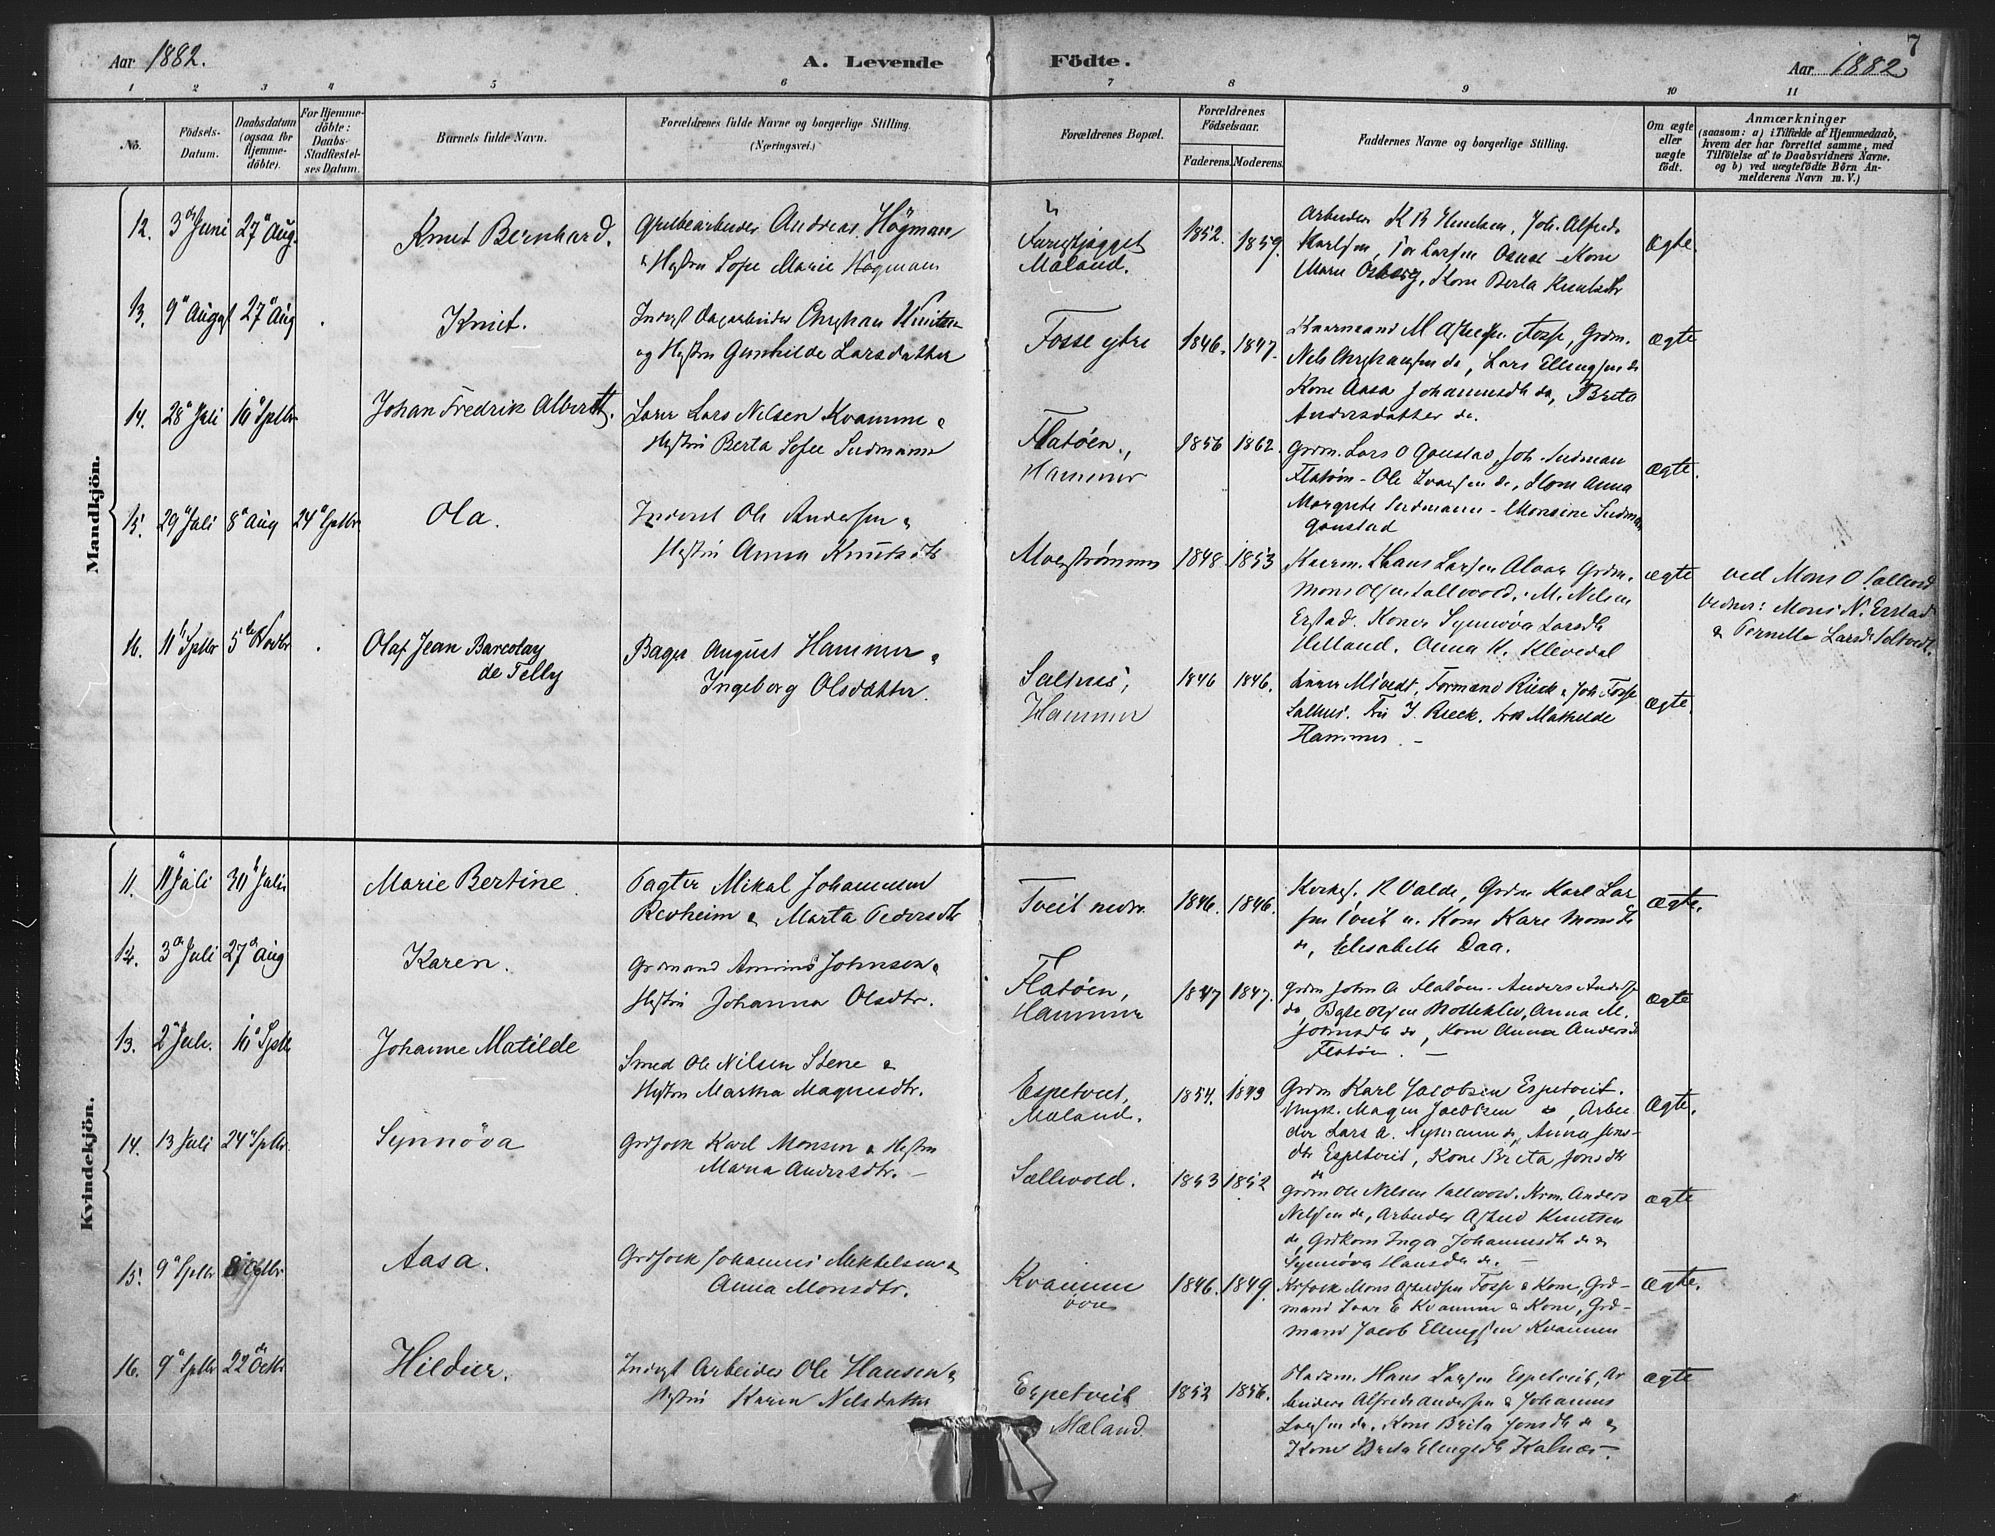 7
Aar 1882.
A. Levende
Födte.
Aar 1882
1 2 3 4 5 6 7 8 9 10 11
No.
Födsels-
Datum.
Daabsdatum
(ogsaa for
Hjemme-
döbte).
For Hjemme-
döbte:
Daabs-
Stadfæstel-
ses Datum.
Barnets fulde Navn.
Forældrenes fulde Navne og borgerlige Stilling.
(Næringsvei.)
Forældrenes Bopæl.
Forældrenes
Födselsaar.
Faderens. Moderens.
Faddernes Navne og borgerlige Stilling.
Om ægte
eller
uægte
födt.
Anmærkninger
(saasom: a) i Tilfælde af Hjemmedaab,
hvem der har forrettet samme, med
Tilföielse af to Daabsvidners Navne.
og b) ved uægtefödte Börn An-
melderens Navn m. V.)
Mandkjön.
12. 3die Juni 27de Aug. Knut Bernhard.
Grubearbeider Andreas Högman
& Hustru Sofie Marie Högman
Maland. 1852. 1859.
Arbeider K B Joh. Alfred
Karlsen, Larsen Kone
Marie Osberg, Kone Berta Knutsdtr
ægte.
13. 9de August 27de Aug. Knut.
Inderst Dagarbeider Christian Knutsen
og Hustru Gunhilde Larsdatter
Fosse ytre 1846. 1847.
Fosse, Grdm.
do, Lars Ellingsen do
Kone Aasa Johannesdtr do, Brita
Andersdatter do.
ægte
14. 28de Juli 10de Sptbr Johan Fredrik Albert.
Lærer Lars Nilsen Kvamme &
Hustru Berta Sofie Sudmann
Flatöen,
Hammer 1856 1862.
Grdm. Lars O Gaustad, Joh. Sudman
Flatöen - Ole Ivarsen do, Kone Anna
Margrete Sudmann - Monsine Sudman
Gaustad
ægte.
15. 29de Juli 8de Aug 24de Sptbr Ola.
Inderst Ole Andersen &
Hustru Anna Knutsdtr
1848. 1853
Hans Larsen Alver Grdm.
Mons Olsen Sallevold. M. Nilsen
Erstad. Kone Synnöva Larsdtr
Helland. Anna K. Klevedal
ægte
ved Mons O. Sallevold
Vidner: Mons N. Erstad
& Pernille Larsdtr
16. 11te Sptbr 5te Novbr Olaf Jean Barcolay
de Telly
Bager August Hammer &
Ingeborg Olsdatter.
Salhus,
Hammer 1846 1846.
Formand Rieck & Joh. Fosse
Salhus. J. Rieck. Mathilde
Hammer. -
ægte.
Kvindekjön.
11. 11te Juli 30te Juli Marie Bertine.
Pagter Mikal Johannesen
Revheim & Marta Pedersdtr
Tveit nedre 1846. 1846.
R Valde, Grdm Karl Lar-
sen Tveit n. Kone Kari Monsdtr
do, Elisabeth Daa.
ægte.
12. 3die Juli 27de Aug Karen.
Grdmand Johnsen &
Hustru Johanna Olsdtr.
Flatöen,
Hammer 1847 1847.
Grdm John A. Flatöen. Anders Anders.
do, Olsen Anna M.
do, Kone Anna Andersdtr
Flatöen. -
ægte
13. 2den Juli. 10de Sptbr Johanne Matilde
Smed Ole Nilsen Stene &
Hustru Martha Magnesdtr.
Espetveit,
Mæland. 1854. 1849
Grdm Karl Jacobsen Espetveit.
Ungk. Magne Jacobsen do, Arbei-
der Lars A. Nymann do, Anna Jons-
dtr Espetveit, Kone Brita Jonsdtr
do
ægte.
14. 13 Juli 24de Sptbr. Synnöva
Grdfolk Karl Monsen & Hustru
Marna Andersdtr. -
Sællevold. 1853 1852
Grdm Ole Nilsen Sallevold. Krm. Anders
Nilsen do, Arbeider Knutsen
do, Grdkone Inga Johannesdtr do &
Synnöva Hansdtr do. -
ægte
15. 9de Sptbr 8de Octbr Aasa.
Grdfolk Johannes Mikkelsen &
Anna Monsdtr.
Kvamme
övre 1846. 1849.
Mons Fosse & Kone, Grd-
mand Ivar E Kvamme & Kone, Grd-
mand Jacob Ellingsen Kvamme
ægte.
16. 9de Sptbr 22de Octbr Hildur.
Inderst Arbeider Ole Hansen &
Hustru Karen Nilsdatter
Espetveit
Mæland. 1852 1856.
Hans Larsen Espetveit, Ar-
beidere Alfred Andersen & Johannes
Larsen do. Kone Brita Jonsdtr do &
Kone Brita Ellingsdtr Kalnæs -
ægte